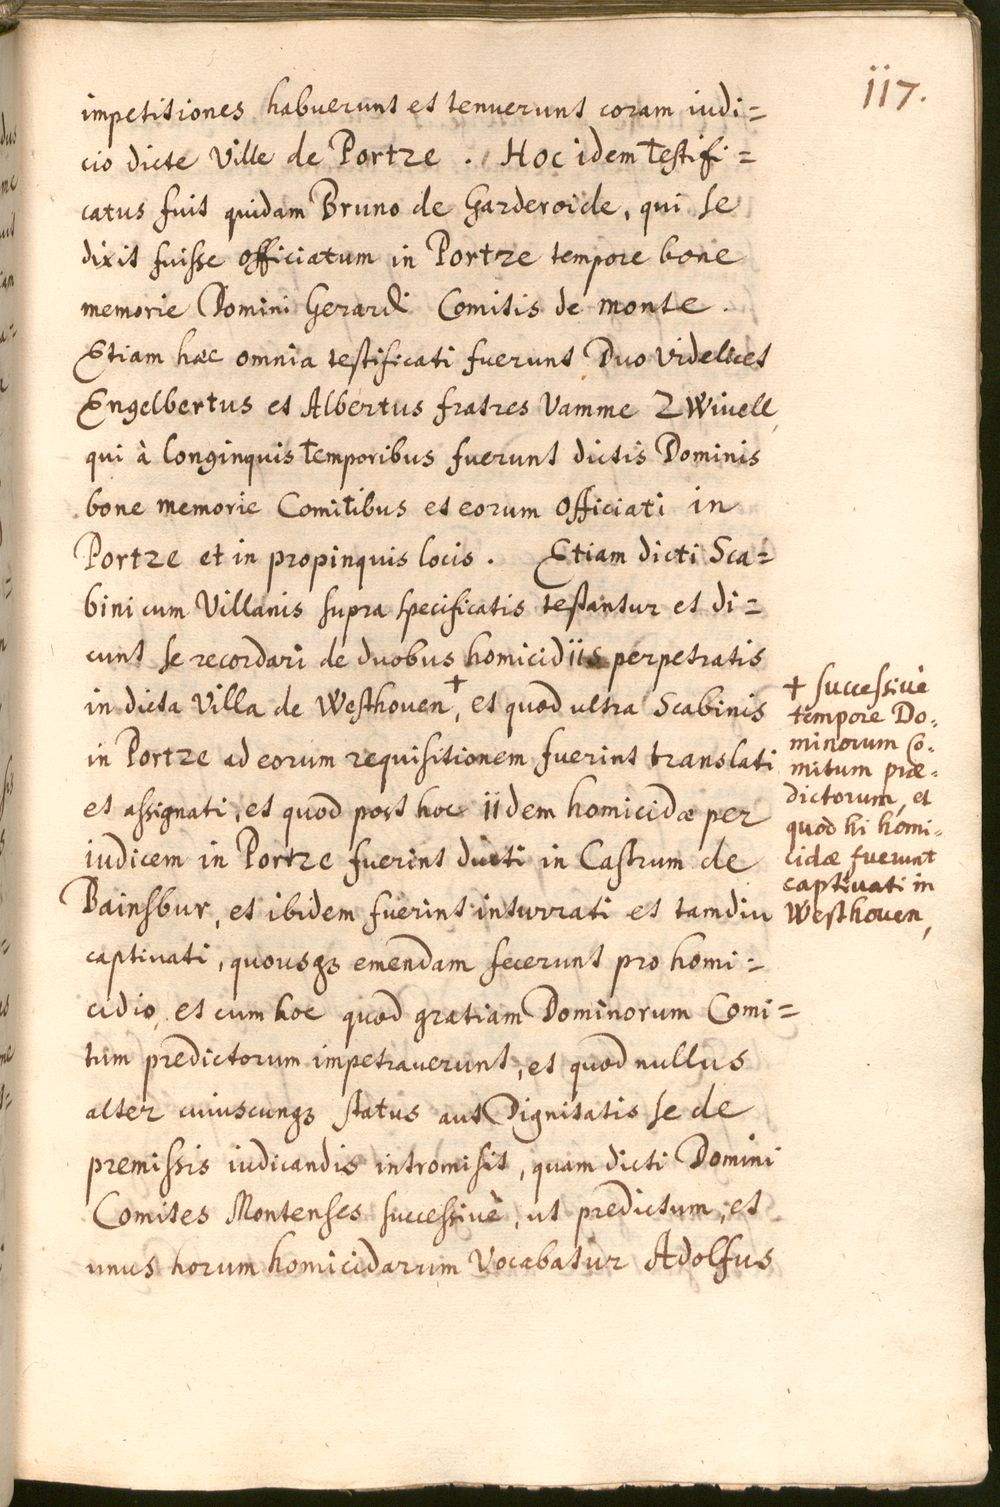 117.
impetitiones habuerunt et tenuerunt coram iudi=
cio dicte Ville de Portze. Hoc idem testifi=
catus fuit quidam Bruno de Garderoide, qui se
dixit fuisse officiatum in Portze tempore bone
memorie Domini Gerardi Comitis de monte.
Etiam hæc omnia testificati fuerunt Duo videlicet
Engelbertus et Albertus fratres Vamme ZWivell,
qui à longinquis temporibus fuerunt dictis Dominis
bone memorie Comitibus et eorum officiati in
Portze et in propinquis locis. Etiam dicti Sca=
bini cum Villanis supra specificatis testantur et di=
cunt se recordari de duobus homicidiis perpetratis
in dicta Villa de Westhouen, + et quod ultra Scabinis
in Portze ad eorum requisitionem fuerint translati
et assignati, et quod post hoc iidem homicidæ per
iudicem in Portze fuerint ducti in Castrum de
Bainsbur, et ibidem fuerint inturrati et tamdiu
captiuati, quousq3 emendam fecerunt pro homi=
cidio, et cum hoc quod gratiam Dominorum Comi=
tum predictorum impetrauerunt, et quod nullus
alter cuiuscunq3 status aut Dignitatis se de
premissis iudicandis intromisit, quam dicti Domini
Comites Montenses successiuè, ut predictum, et
unus horum homicidarum Vocabatur Adolfus
+ successiuè
tempore Do=
minorum Co=
mitum præ=
dictorum, et
quod hi homi=
cidæ fuerunt
captiuati in
Westhouen,